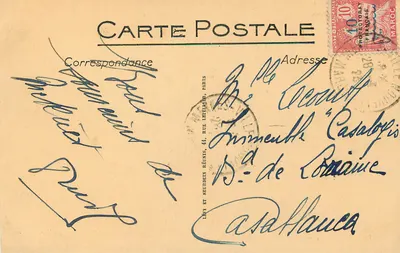 CARTE POSTALE
Correspondance
Adresse
Bons
souvenirs de
Meknès
LEVY ET NEURDEIN RÉUNIS, 44, RUE LETELLIER, PARIS
Mlle Lecourt
Immeuble "Casalogis"
Bd de Lorraine
Casablanca
10
PROTECTORAT
FRANÇAIS
MAROC